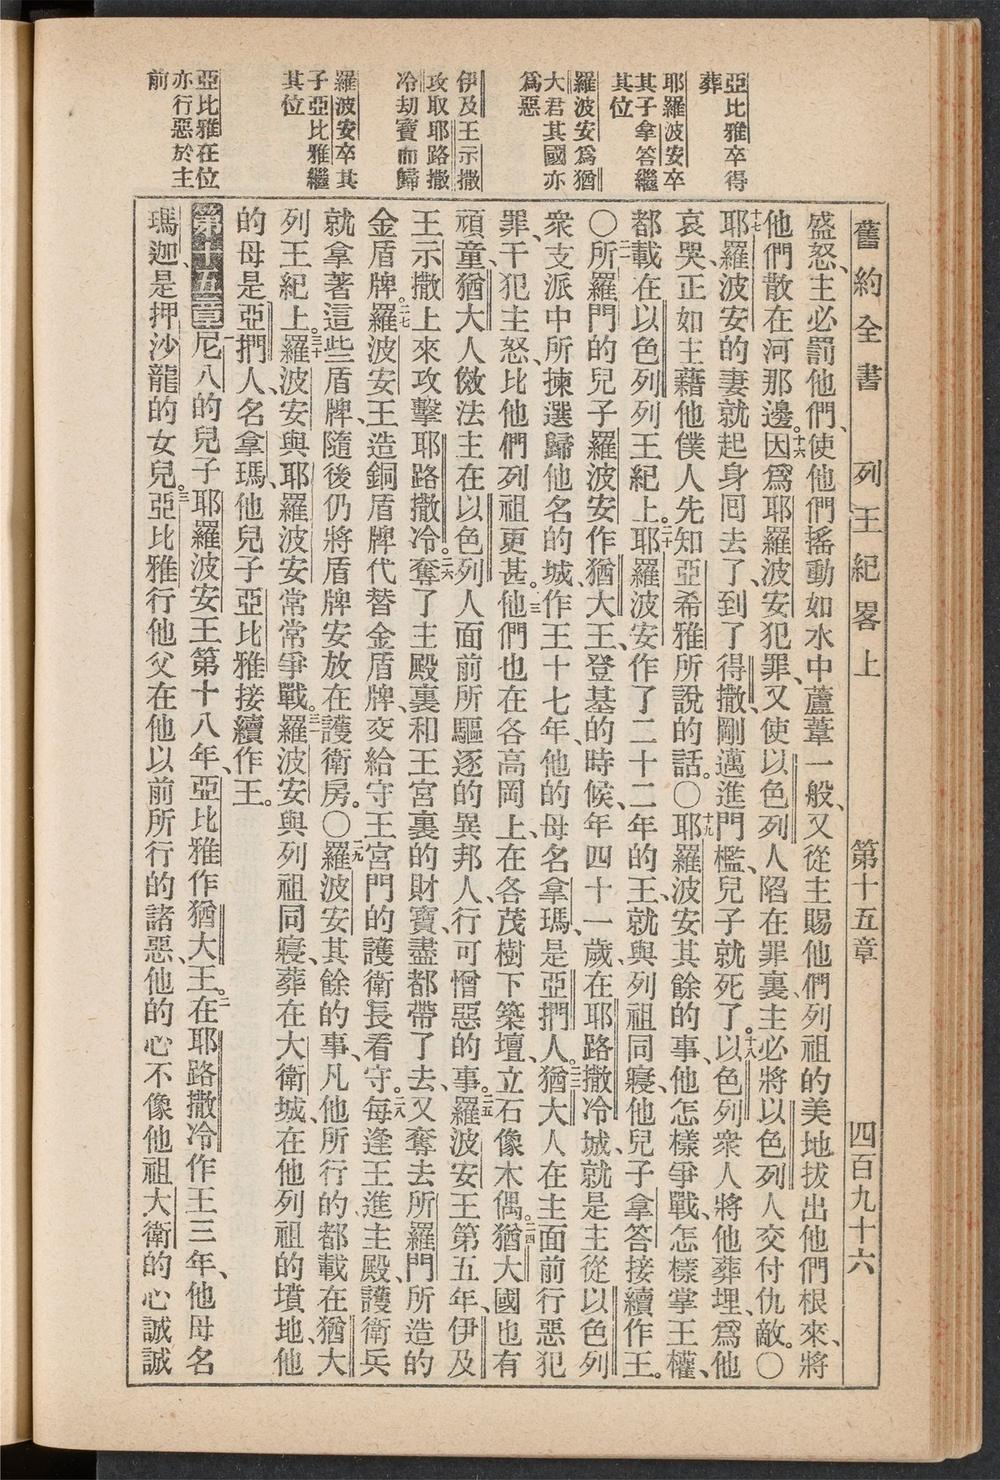 舊約全書 列王紀畧上 第十五章 四百九十六
亞比雅卒得
葬
耶羅波安卒
其子拿答繼
其位
羅波安爲猶
大君其國亦
爲惡
伊及王示撒
攻取耶路撒
冷劫寶而歸
羅波安卒其
子亞比雅繼
其位
亞比雅在位
亦行惡於主
前
盛怒、主必罰他們、使他們搖動如水中蘆葦一般、又從主賜他們列祖的美地拔出他們根來、將
他們散在河那邊。十六因爲耶羅波安犯罪、又使以色列人陷在罪裏、主必將以色列人交付仇敵。〇
十七耶羅波安的妻就起身囘去了、到了得撒、剛邁進門檻、兒子就死了。十八以色列衆人將他葬埋、爲他
哀哭、正如主藉他僕人先知亞希雅所說的話。〇十九耶羅波安其餘的事、他怎樣爭戰、怎樣掌王權、
都載在以色列列王紀上。二十耶羅波安作了二十二年的王、就與列祖同寢、他兒子拿答接續作王。
〇二一所羅門的兒子羅波安作猶大王、登基的時候、年四十一歲、在耶路撒冷城、就是主從以色列
衆支派中所揀選歸他名的城、作王十七年、他的母名拿瑪、是亞捫人。二二猶大人在主面前行惡犯
罪、干犯主怒、比他們列祖更甚。二三他們也在各高岡上、在各茂樹下築壇、立石像木偶。二四猶大國也有
頑童、猶大人傚法主在以色列人面前所驅逐的異邦人、行可憎惡的事。二五羅波安王第五年、伊及
王示撒上來攻擊耶路撒冷。二六奪了主殿裏和王宮裏的財寶、盡都帶了去、又奪去所羅門所造的
金盾牌。二七羅波安王造銅盾牌代替金盾牌、交給守王宮門的護衛長看守。二八每逢王進主殿、護衛兵
就拿著這些盾牌、隨後仍將盾牌安放在護衛房。〇二九羅波安其餘的事、凡他所行的、都載在猶大
列王紀上。三十羅波安與耶羅波安常常爭戰。三一羅波安與列祖同寢、葬在大衛城、在他列祖的墳地、他
的母是亞捫人、名拿瑪、他兒子亞比雅接續作王。
第十五章一尼八的兒子耶羅波安王第十八年、亞比雅作猶大王。二在耶路撒冷作王三年、他母名
瑪迦、是押沙龍的女兒。三亞比雅行他父在他以前所行的諸惡、他的心不像他祖大衛的心誠誠